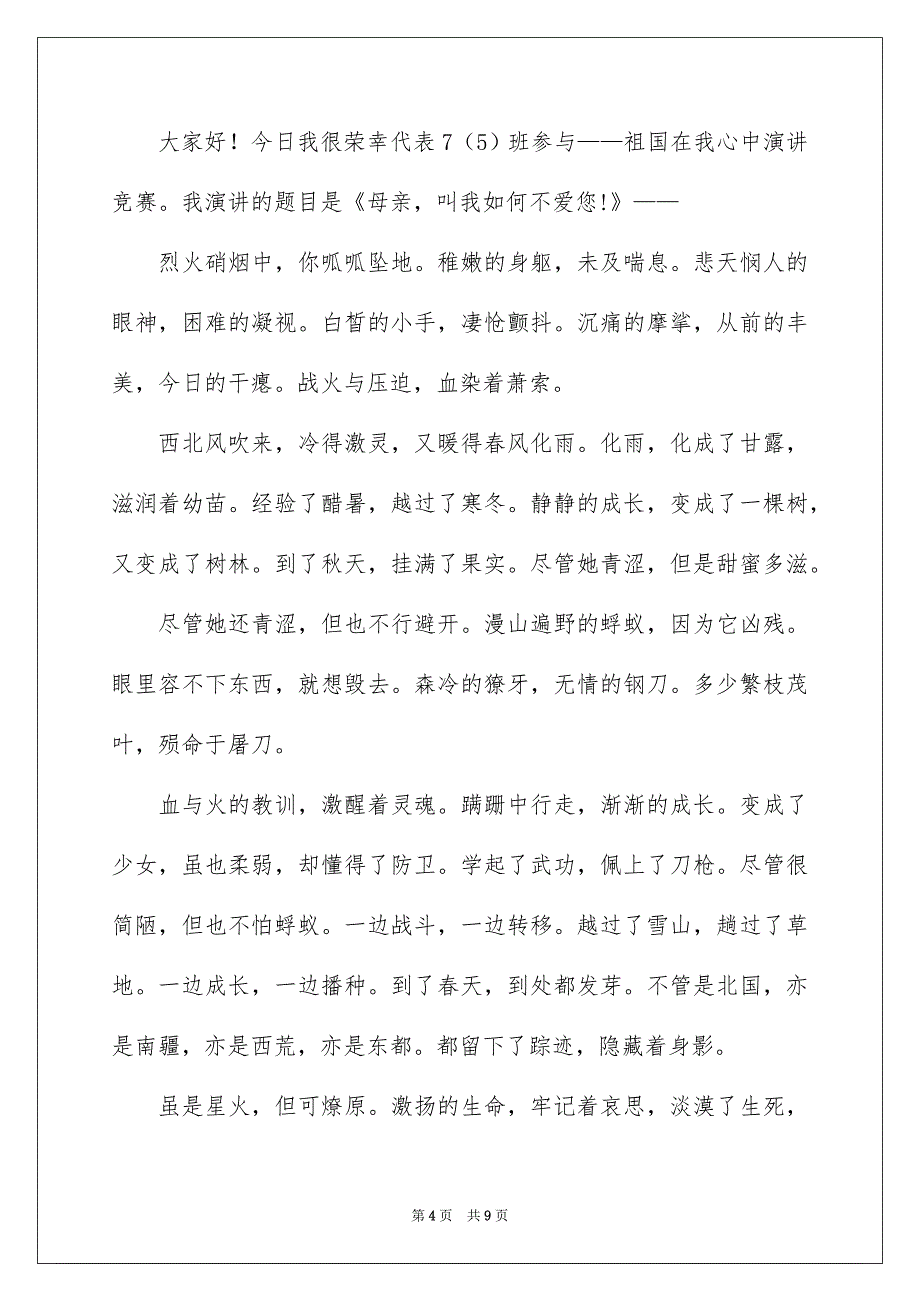 大家好！今日我很荣幸代表7（5）班参与——祖国在我心中演讲
竞赛。我演讲的题目是《母亲，叫我如何不爱您!》——
烈火硝烟中，你呱呱坠地。稚嫩的身躯，未及喘息。悲天悯人的
眼神，困难的凝视。白皙的小手，凄怆颤抖。沉痛的摩挲，从前的丰
美，今日的干瘪。战火与压迫，血染着萧索。
西北风吹来，冷得激灵，又暖得春风化雨。化雨，化成了甘露，
滋润着幼苗。经验了醋暑，越过了寒冬。静静的成长，变成了一棵树，
又变成了树林。到了秋天，挂满了果实。尽管她青涩，但是甜蜜多滋。
尽管她还青涩，但也不行避开。漫山遍野的蜉蚁，因为它凶残。
眼里容不下东西，就想毁去。森冷的獠牙，无情的钢刀。多少繁枝茂
叶，殒命于屠刀。
血与火的教训，激醒着灵魂。蹒跚中行走，渐渐的成长。变成了
少女，虽也柔弱，却懂得了防卫。学起了武功，佩上了刀枪。尽管很
简陋，但也不怕蜉蚁。一边战斗，一边转移。越过了雪山，趟过了草
地。一边成长，一边播种。到了春天，到处都发芽。不管是北国，亦
是南疆，亦是西荒，亦是东都。都留下了踪迹，隐藏着身影。
虽是星火，但可燎原。激扬的生命，牢记着哀思，淡漠了生死，
第4页 共9页